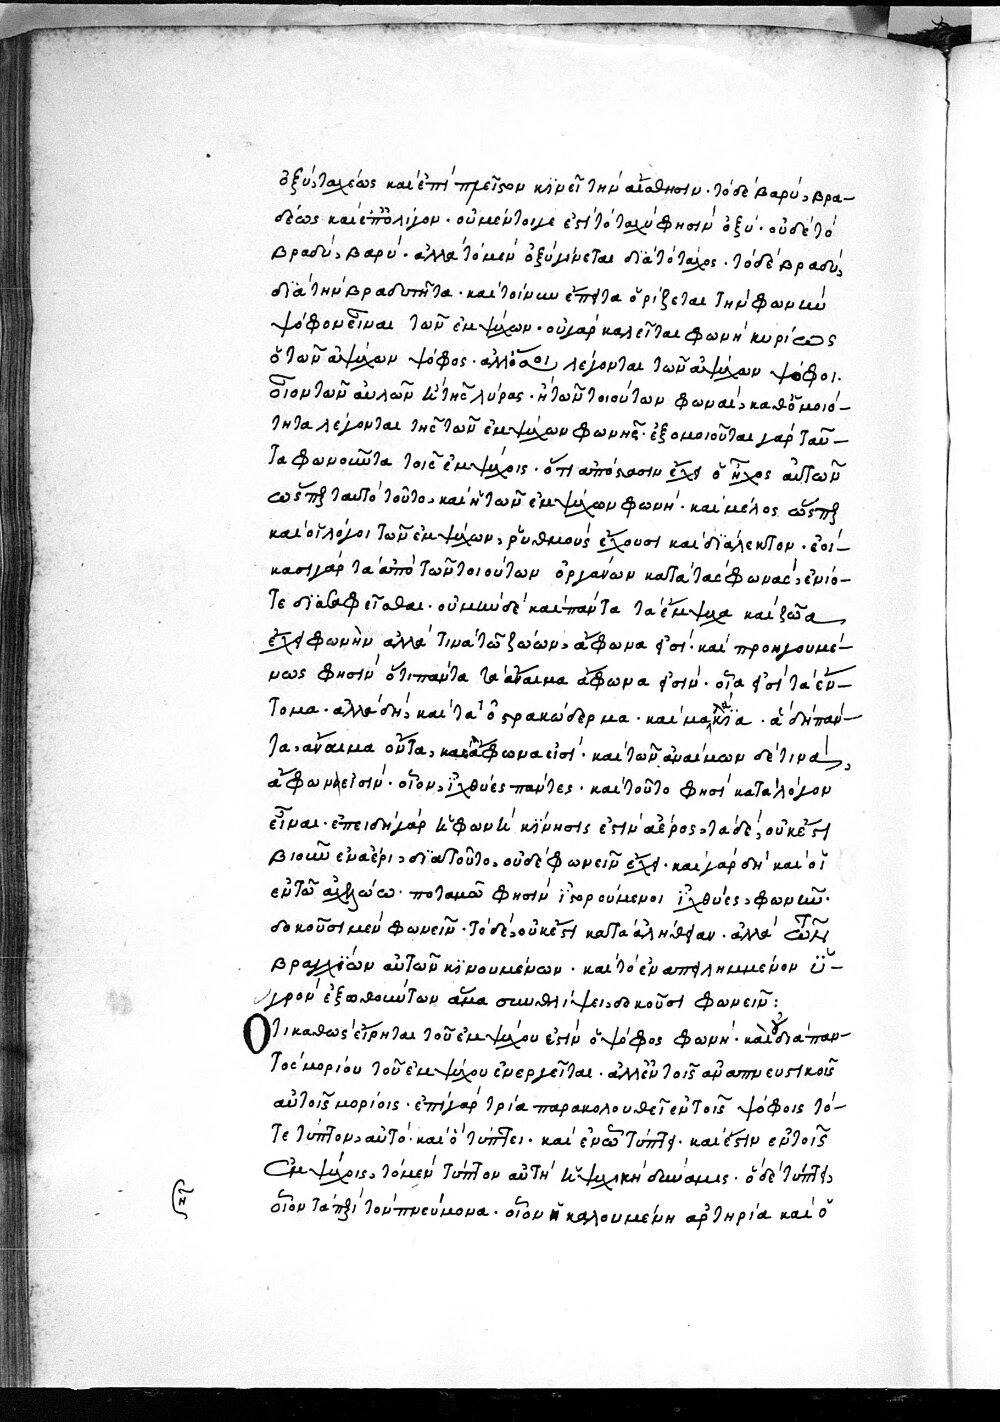 ὀξύ, ταχέως καὶ ἐπὶ πλεῖστον κϊνεῖ τὴν αἴσθησιν· τὸ δὲ βαρύ, βρα-
δέως καὶ ἐπ' ὀλίγον· οὐ μέντοιγε ἐστὶ τὸ ταχὺ φησὶν ὀξύ· οὐδὲ τὸ
βραδύ, βαρύ· ἀλλὰ τὸ μὲν ὀξὺ γίνεται διὰ τὸ τάχος· τὸ δὲ βραδύ,
διὰ τὴν βραδυτῆτα· καὶ τοίνυν ἔπειτα ὁρίζεται τὴν φωνὴν
ψόφον εἶναι τῶν ἐμψύχων· οὐ γὰρ καλεῖται φωνὴ κυρίως
ὁ τῶν ἀψύχων ψόφος· ἀλλ' ὅσοι λέγονται τῶν ἀψύχων ψόφοι·
οἷον τῶν αὐλῶν ἢ τῆς λύρας· ἢ τῶν τοιούτων φωναί, καθ' ὁμοιό-
τητα λέγονται τῆς τῶν ἐμψύχων φωνῆς· ἐξομοιοῦται γὰρ ταῦ-
τα φωνοῦντα τοῖς ἐμψύχοις· ὅτι ἀπότασιν ἔχει ὁ ἦχος αὐτῶν
ὥσπερ ταυτὸ τοῦτο, καὶ ἡ τῶν ἐμψύχων φωνή· καὶ μέλος ὥσπερ
καὶ οἱ λόγοι τῶν ἐμψύχων, ῥυθμοὺς ἔχουσι καὶ διάλεκτον· ἐοί-
κασι γὰρ τὰ ἀπὸ τῶν τοιούτων ὀργάνων κατὰ τὰς φωνάς, ἐνίο-
τε οὐ μὴν δὲ καὶ πάντα τὰ ἔμψυχα καὶ ζῶα
ἔχει φωνὴν ἀλλά τινα τῶν ζώων, ἄφωνα εἰσί· καὶ προηγουμέ-
νως φησὶν ὅτι πάντα τὰ ἄναιμα ἄφωνα εἰσίν· οἷα εἰσὶ τὰ ἔν-
τομα· ἀλλὰ δή, καὶ τὰ ὀστρακώδερμα· καὶ μαλάκϊα· ἃ δὴ πάν-
τα, ἄναιμα ὄντα, καὶ ἄφωνα εἰσί· καὶ τῶν ἐναίμων δὲ τινὰ,
ἄφωνα εἰσίν· οἷον, ἰχθύες πάντες· καὶ τοῦτο φησὶ κατὰ λόγον
εἶναι· ἐπειδὴ γὰρ ἡ φωνὴ κίνησις ἐστὶν ἀέρος, τὰ δέ, οὐκ ἔστι
βιοῦν ἐν ἀέρι, διατοῦτο, οὐδὲ φωνεῖν ἔχει· καὶ γὰρ δὴ καὶ οἱ
ἐν τῷ ἀχελώω· ποταμῶ φησὶν ἱστορούμενοι ἰχθύες, φωνεῖν·
δοκοῦσι μὲν φωνεῖν· τὸ δέ, οὐκ ἔστι κατὰ ἀλήθειαν· ἀλλὰ τῶν
βραγχίων αὐτῶν κϊνουμένων· καὶ τὸ ἐναπειλημμένον ὑ-
γρὸν ἐξωθούντων ἅμα συνθλίψει, δοκοῦσι φωνεῖν:
Ὅτι καθὼς εἴρηται τοῦ ἐμψύχου ἐστὶν ὁ ψόφος φωνή· καὶ οὐ διὰ παν-
τὸς μορίου τοῦ ἐμψύχου ἐνεργεῖται· ἀλλ' ἐν τοῖς ἀναπνευστικοῖς
αὐτοῖς μορίοις· ἐπεὶ γὰρ τρία παρακολουθεῖ ἐν τοῖς ψόφοις τό-
τε τύπτον, αὐτό· καὶ ὃ τύπτει· καὶ ἐν ὧ τύπτει· καὶ ἔστιν ἐν τοῖς
ἐμψύχοις, τὸ μὲν τύπτον αὐτὴ ἡ ψυχικὴ δύναμις· ὃ δὲ τύπτει,
οἷον τὰ περὶ τὸν πνεύμονα· οἷον ἡ καλουμένη ἀρτηρία καὶ ὁ